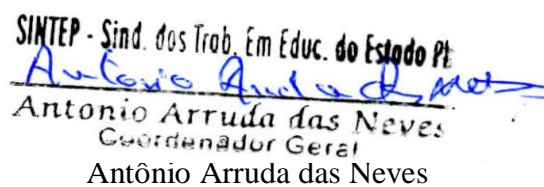 SINTEP - Sind. dos Trab. Em Educ. do Estado PB
Antonio Arruda das Neves
Antonio Arruda das Neves
Coordenador Geral
Antônio Arruda das Neves